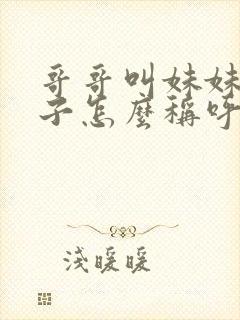 哥哥叫妹妹
子怎麼稱呼
淺暖暖